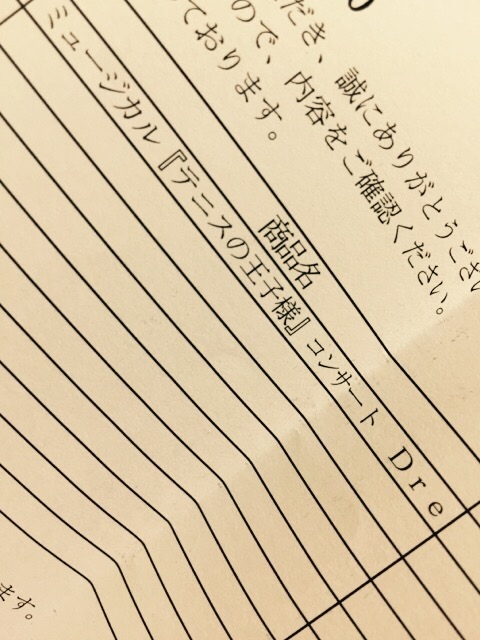 だき、誠にありがとうござい
ので、内容をご確認ください。
ております。
商品名
ミュージカル『テニスの王子様』コンサート Dre
ます。